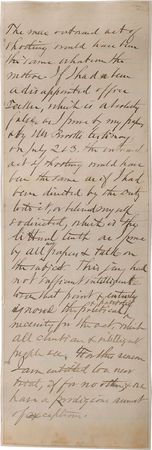 The mere outward act of
shooting would have been
the same whatever the
motive. If I had been
a disappointed office
seeker, which is absolutely
false as I prove by my papers
& by Mr Brooks testimony
on July 2 & 3. the outward
act of shooting would have
been the same as if I had
been directed by the
to do it, or believed myself
so directed, which is the
truth as I prove
by all my papers & talk on
the subject. This jury had
not sufficient intelligence
over that point &
ignored the political
necessity for the act, which
all christian & intelligent
people see. For this reason
I am entitled to a new
trial, if for no other, & we
have a prodigious amount
of exceptions.